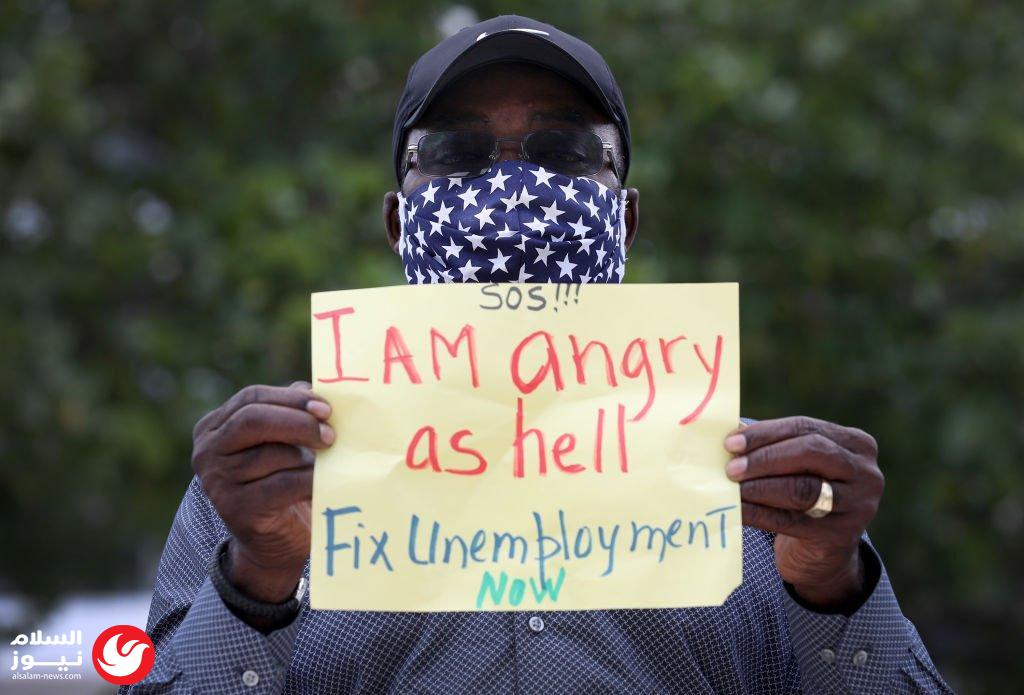 SOS!!!
I AM angry
as hell
Fix Unemployment
NOW
السلام
نيوز
alsalam-news.com